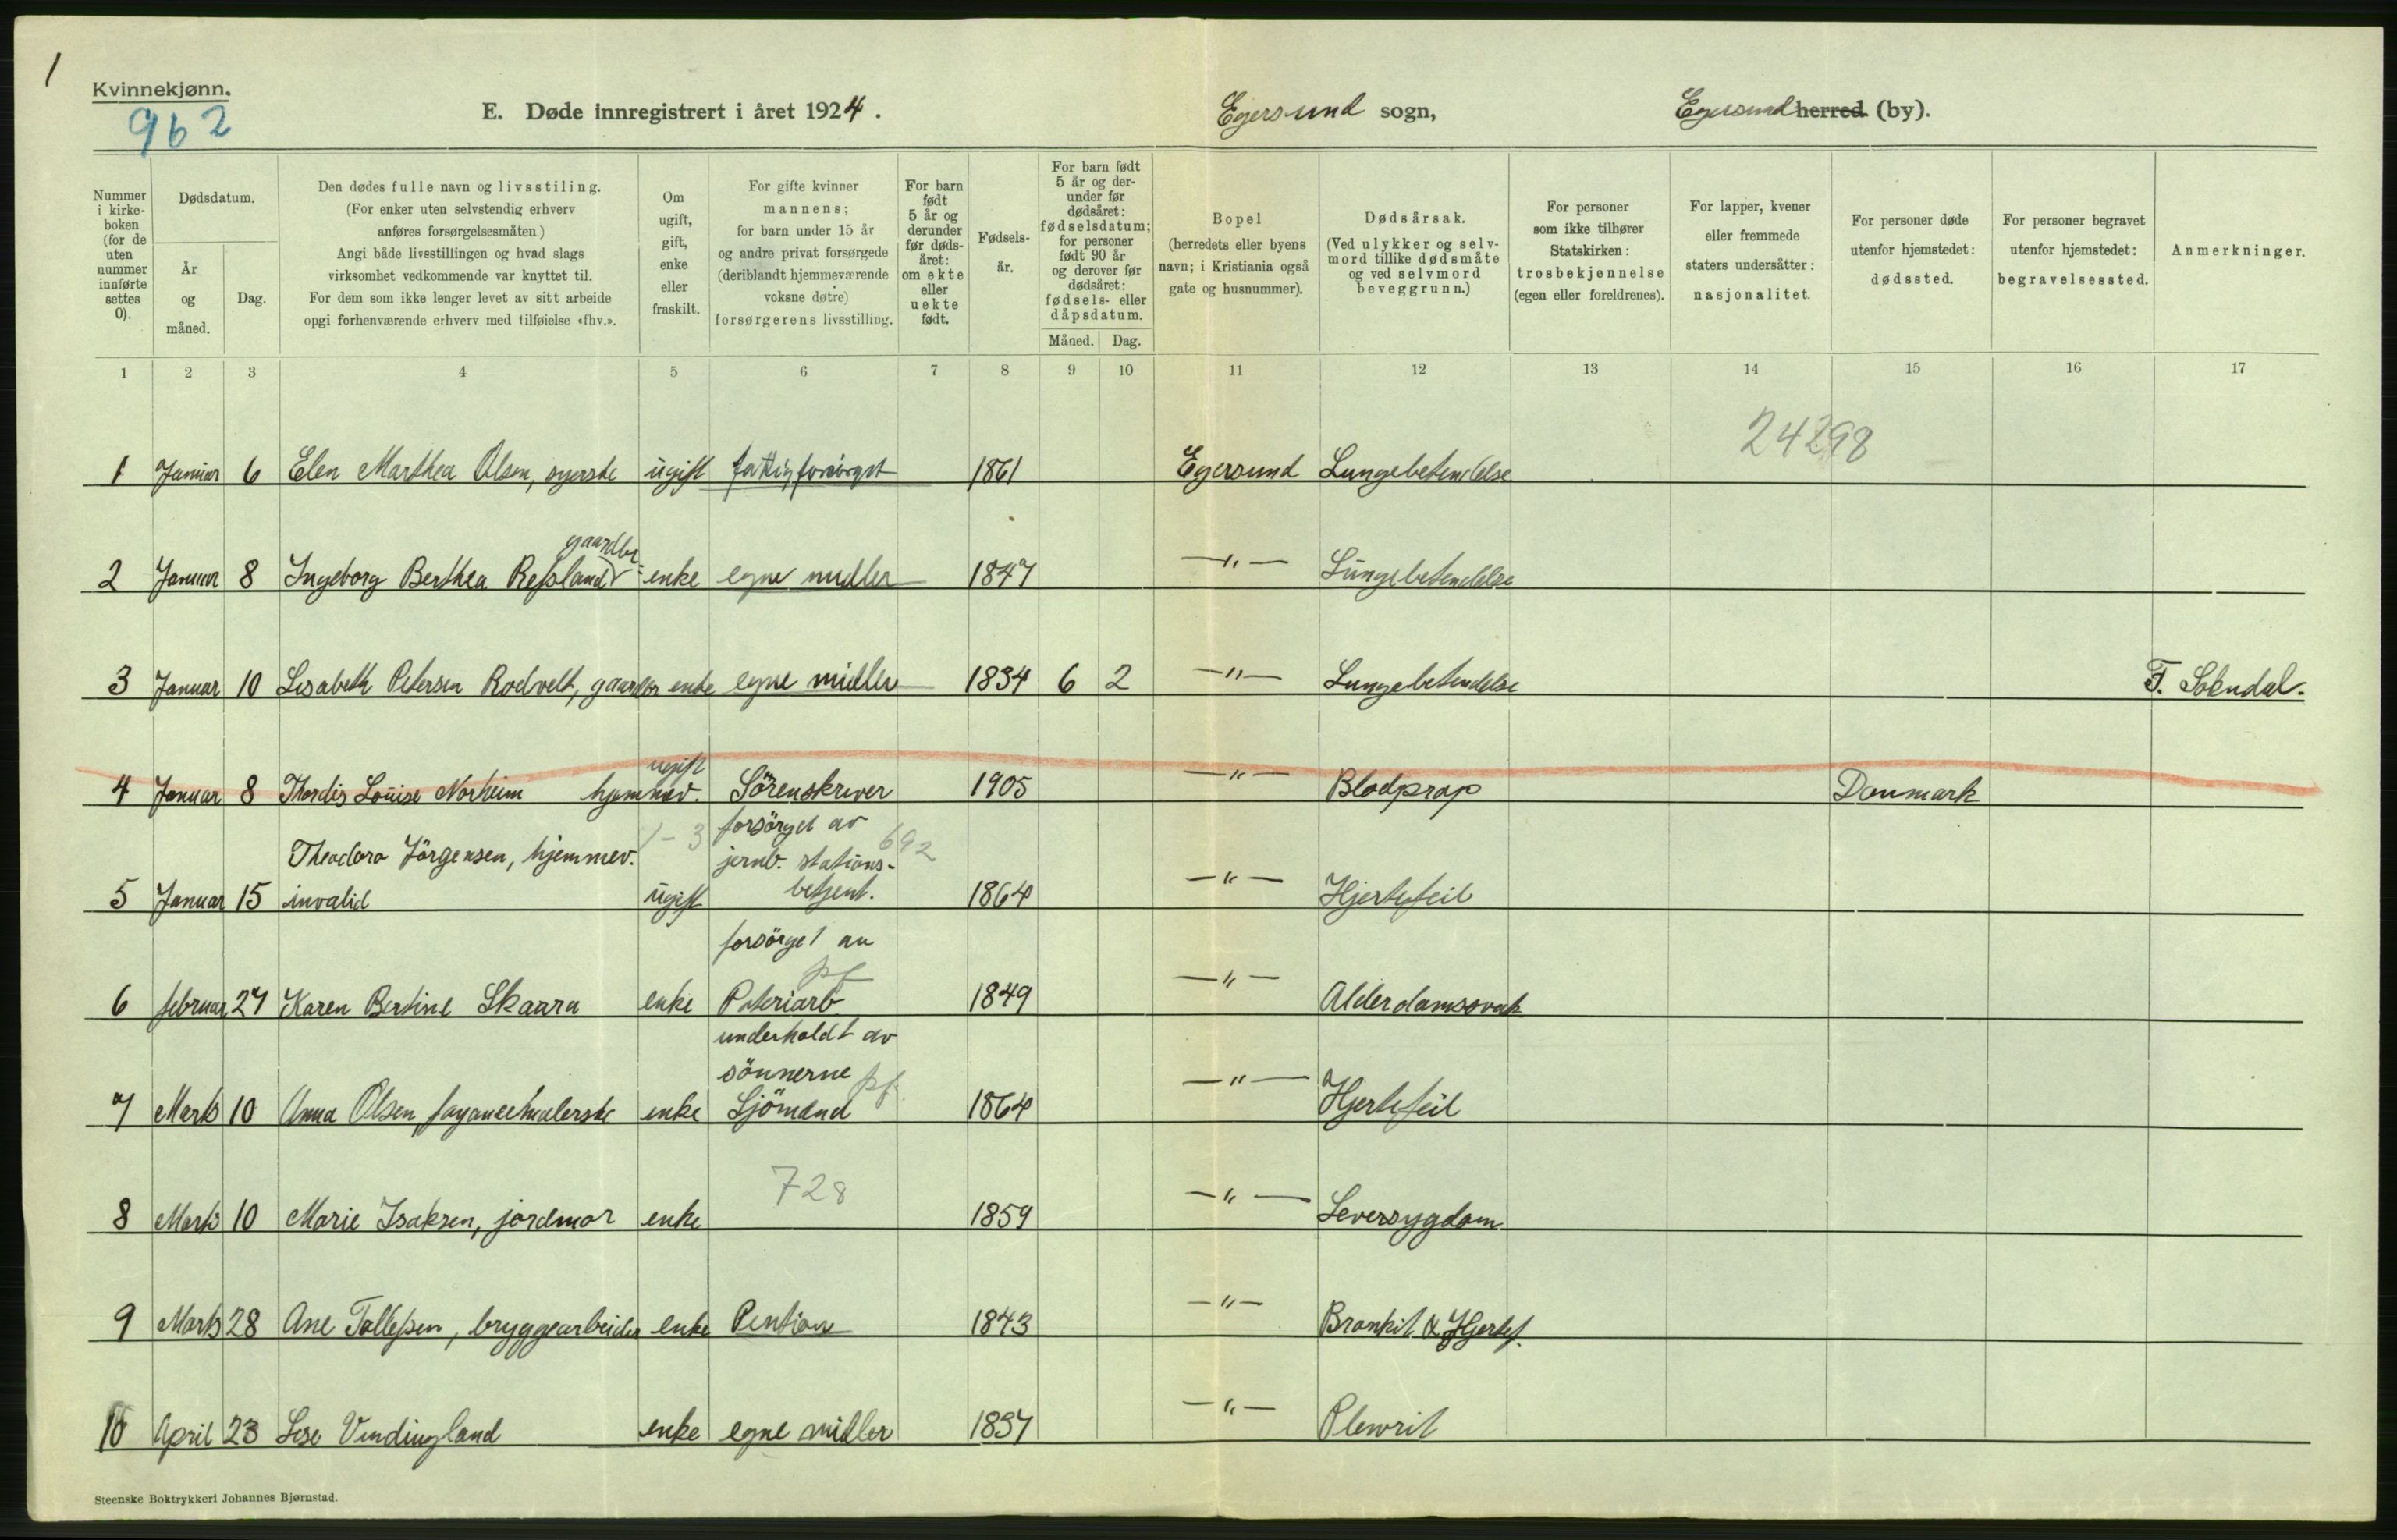 1
Kvinnekjønn.
962
E. Døde innregistrert i året 1924.
Egersund sogn,
Egersund herred (by).
Nummer i kirke-boken (for de uten nummer innførte settes 0).
Dødsdatum.
År og måned.
Dag.
Den dødes fulle navn og livsstiling.
(For enker uten selvstendig erhverv
anføres forsørgelsesmåten)
Angi både livsstillingen og hvad slags
virksomhet vedkommende var knyttet til.
For dem som ikke lenger levet av sitt arbeide
opgi forhenværende erhverv med tilføielse «fhv.».
Om ugift, gift, enke eller fraskilt.
For gifte kvinner
mannens;
for barn under 15 år
og andre privat forsørgede
(deriblandt hjemmeværende
voksne døtre)
forsørgerens livsstilling.
For barn født 5 år og derunder før døds-året: om ekte eller uekte født.
Fødsels-år.
For barn født 5 år og der-under før dødsåret: fødselsdatum; for personer født 90 år og derover før dødsåret: fødsels- eller dåpsdatum.
Måned.
Dag.
Bopel
(herredets eller byens
navn; i Kristiania også
gate og husnummer).
Dødsårsak.
(Ved ulykker og selv-
mord tillike dødsmåte
og ved selvmord
beveggrunn.)
For personer
som ikke tilhører
Statskirken:
trosbekjennelse
(egen eller foreldrenes).
For lapper, kvener
eller fremmede
staters undersåtter:
nasjonalitet.
For personer døde
utenfor hjemstedet:
dødssted.
For personer begravet
utenfor hjemstedet:
begravelsessted.
Anmerkninger.
1 2 3 4 5 6 7 8 9 10 11 12 13 14 15 16 17
24298
1 Januar 6 Elen Marthea Olsen, syerske ugift fattigforsörget 1861 Egersund Lungebetendelse
gaardbr
2 Januar 8 Ingeborg Berthea Refsland enke egne midler 1847 —"— Lungebetendelse
3 Januar 10 Lisabeth Petersen Rodvelt, gaardbr enke egne midler 1834 6 2 —"— Lungebetendelse F. Sokndal.
ugift
4 Januar 8 Thordis Louise Norheim hjemmev. Sörenskriver 1905 —"— Blodprop Danmark
forsörget av
Theodora Jörgensen, hjemmev. 1-3 jernb. stations- 692
5 Januar 15 invalid ugift betjent. 1864 —"— Hjertefeil
forsörget av
pf
6 februar 27 Karen Bertine Skaara enke 1849 —"— Alderdomssvak
underholdt av
sönnerne pf
7 Marts 10 Anna Olsen, fayancemalerske enke Sjömand 1864 —"— Hjertefeil
728
8 Marts 10 Marie Isaksen, jordmor enke 1859 —"— Leversygdom
9 Marts 28 Ane Tollefsen, bryggearbeider enke Pention 1843 —"— Bronkit & Hjertef.
10 April 23 Lise Vendingland enke egne midler 1837 —"— Plevrit
Steenske Boktrykkeri Johannes Bjørnstad.